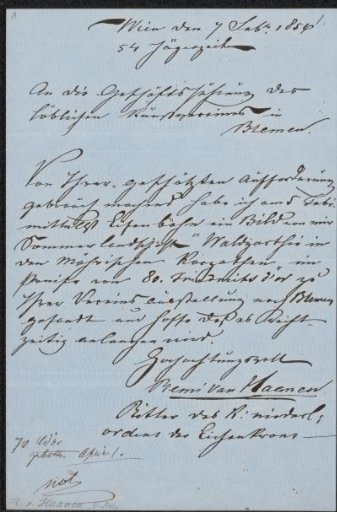 Wien den 7 Febr 1854
54 Jägerzeile
An die Geschäftsführung des
löblichen Kunstvereines in
Bremen.
Von Ihrer geschätzten Aufforderung
gebrauch machend habe ich am 5 Febr
mittelst Eisenbahn ein Bild von mir
Sommerlandschaft "Waldparthie in
den Mährischen Karpathen im
Preise von 80. Friedrichs d'or zu
Ihrer Vereins ausstellung nach Bremen
gesandt und hoffe daß es Recht-
zeitig anlangen wird.
Hochachtungsvoll
Remi van Haanen
Ritter des K: niederl:
ordens der Eichenkrone
70
April.
not